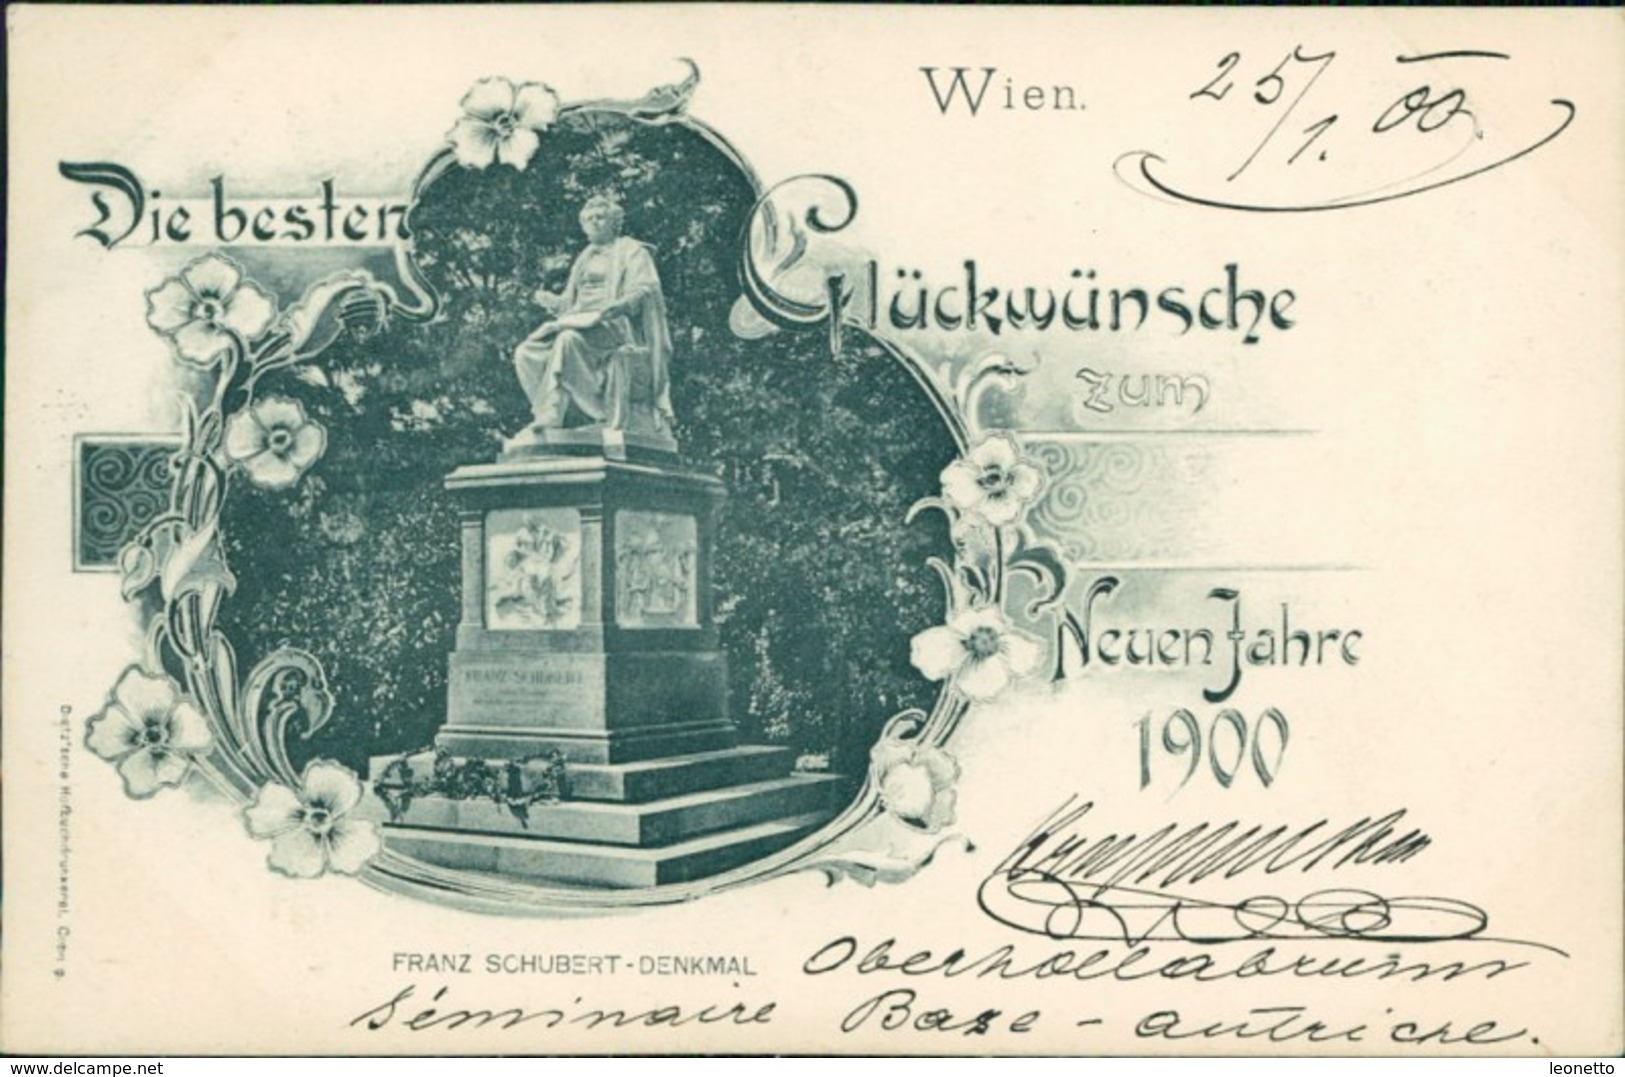 Wien. 25/1. 00.
Die besten
Glückwünsche
zum
Neuen Jahre
1900
FRANZ SCHUBERT
FRANZ SCHUBERT-DENKMAL
Oberhollabrunn
Séminaire Base-autriche.
www.delcampe.net
leonetto